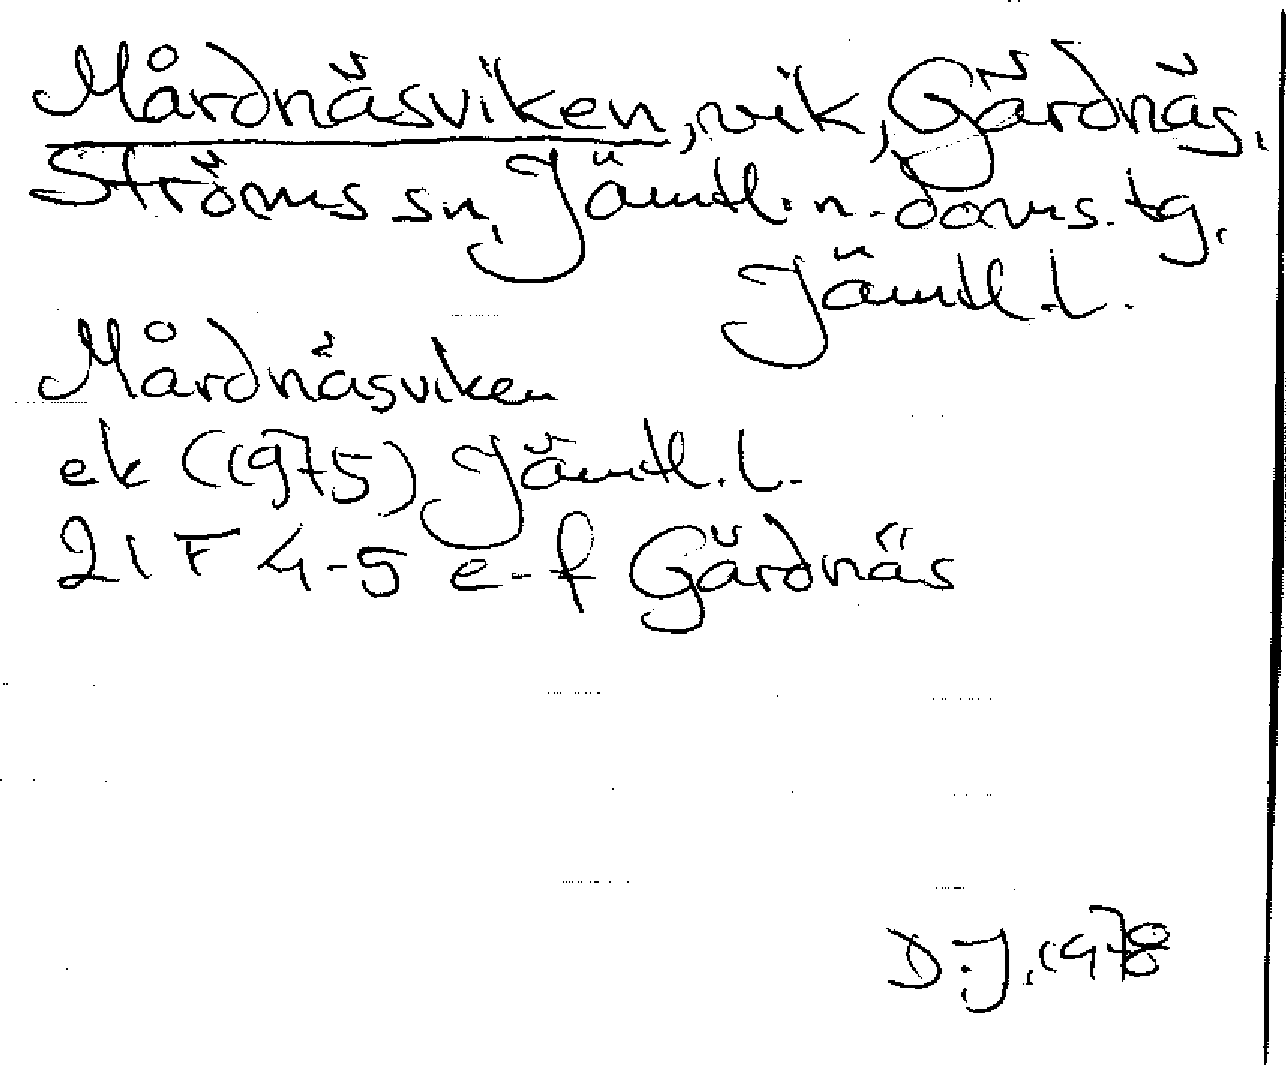 Mårdnäsviken, vik, Gärdnäs,
Ströms sn, Jämtl. n. doms. tg,
Jämtl. l.
Mårdnäsviken
ek (1975) Jämtl. l.
21 F 4-5 e-f Gärdnäs
D. J. 1978